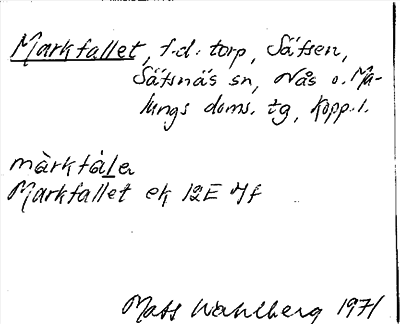 Markfallet, f.d. torp, Säfsen,
Säfsnäs sn, Nås o. Ma-
lungs doms. tg, Kopp. l.
màrkfàlen
Markfallet ek 12E 7f
Mats Wahlberg 1971